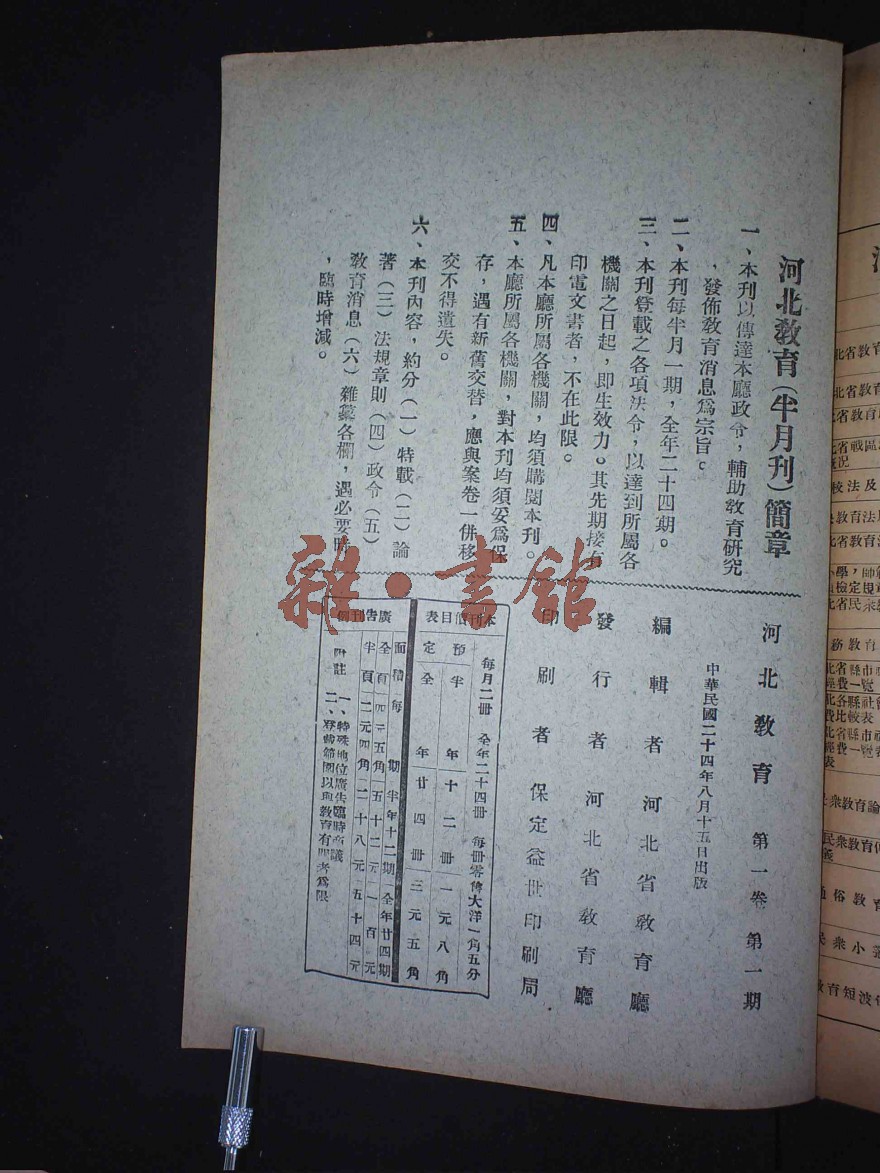 河北敎育(半月刊)簡章
一、本刊以傳達本廳政令，輔助敎育研究
，發佈敎育消息爲宗旨。
二、本刊每半月一期，全年二十四期。
三、本刊登載之各項法令，以達到所屬各
機關之日起，即生效力。其先期接有
印電文書者，不在此限。
四、凡本廳所屬各機關，均須購閱本刊。
五、本廳所屬各機關，對本刊均須妥爲保
存，遇有新舊交替，應與案卷一併移
交不得遺失。
六、本刊內容，約分(一)特載(二)論
著(三)法規章則(四)政令(五)
敎育消息(六)雜纂各欄，遇必要時
，臨時增減。
河北敎育 第一卷 第一期
中華民國二十四年八月十五日出版
編輯者 河北省敎育廳
發行者 河北省敎育廳
印刷者 保定益世印刷局
本刊價目表
每月二冊 全年二十四冊 每冊零售大洋一角五分
預 半年 十二冊 一元八角
定 全年 廿四冊 三元五角
廣告刊例
面積 每期 半年十二期 全年廿四期
全頁 四元五角 五十二元 一百元
半頁 二元四角 二十八元 五十四元
附註 一、特殊地位廣告臨時商議
二、登載範圍以與敎育有關者爲限
雜·書館
北省敎育
北省敎育
北省戰區
概況
校法及
敎育法
北省敎育
北省民衆
務敎育
北省縣市
經費一覽
北各縣社會
費比較表
北省縣市
經費一覽
表
衆敎育論
民衆敎育
通俗敎育
民衆小
敎育短波